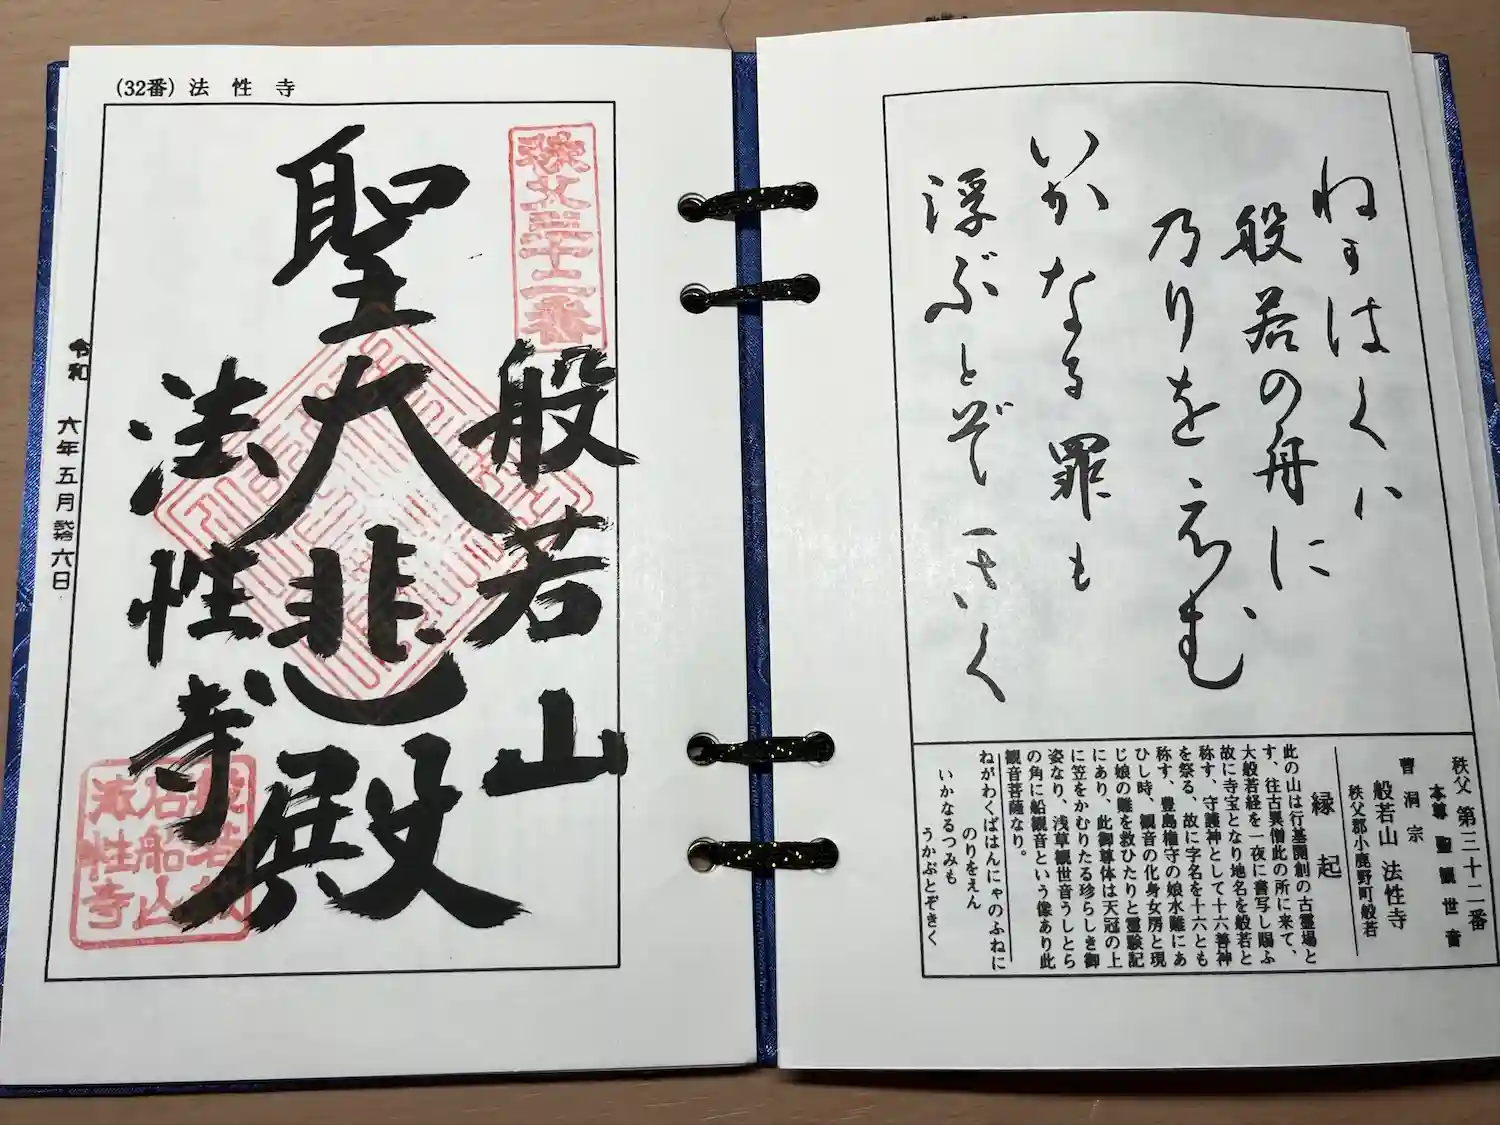 (32番) 法性寺
秩父三十二番
般若山
聖大悲殿
法性寺
石船山
法性寺
令和 六年五月 六日
ねかはくハ
般若の舟に
乃りをゑむ
いかなる罪も
浮ぶとぞきく
秩父 第三十二番
本尊 聖観世音
曹洞宗
般若山 法性寺
秩父郡小鹿野町般若
縁起
此の山は行基開創の古霊場と
す、往古異僧此の所に来て、
大般若経を一夜に書写し賜ふ
故に寺宝となり地名を般若と
称す、守護神として十六善神
を祭る、故に字名を十六とも
称す、豊島権守の娘水難にあ
ひし時、観音の化身女房と現
じ娘の難を救ひたりと霊験記
にあり、此御尊体は天冠の上
に笠をかむりたる珍らしき御
姿なり、浅草観世音うしとら
の角に船観音という像あり此
観音菩薩なり。
ねがわくばはんにゃのふねに
のりをえん
いかなるつみも
うかぶとぞきく